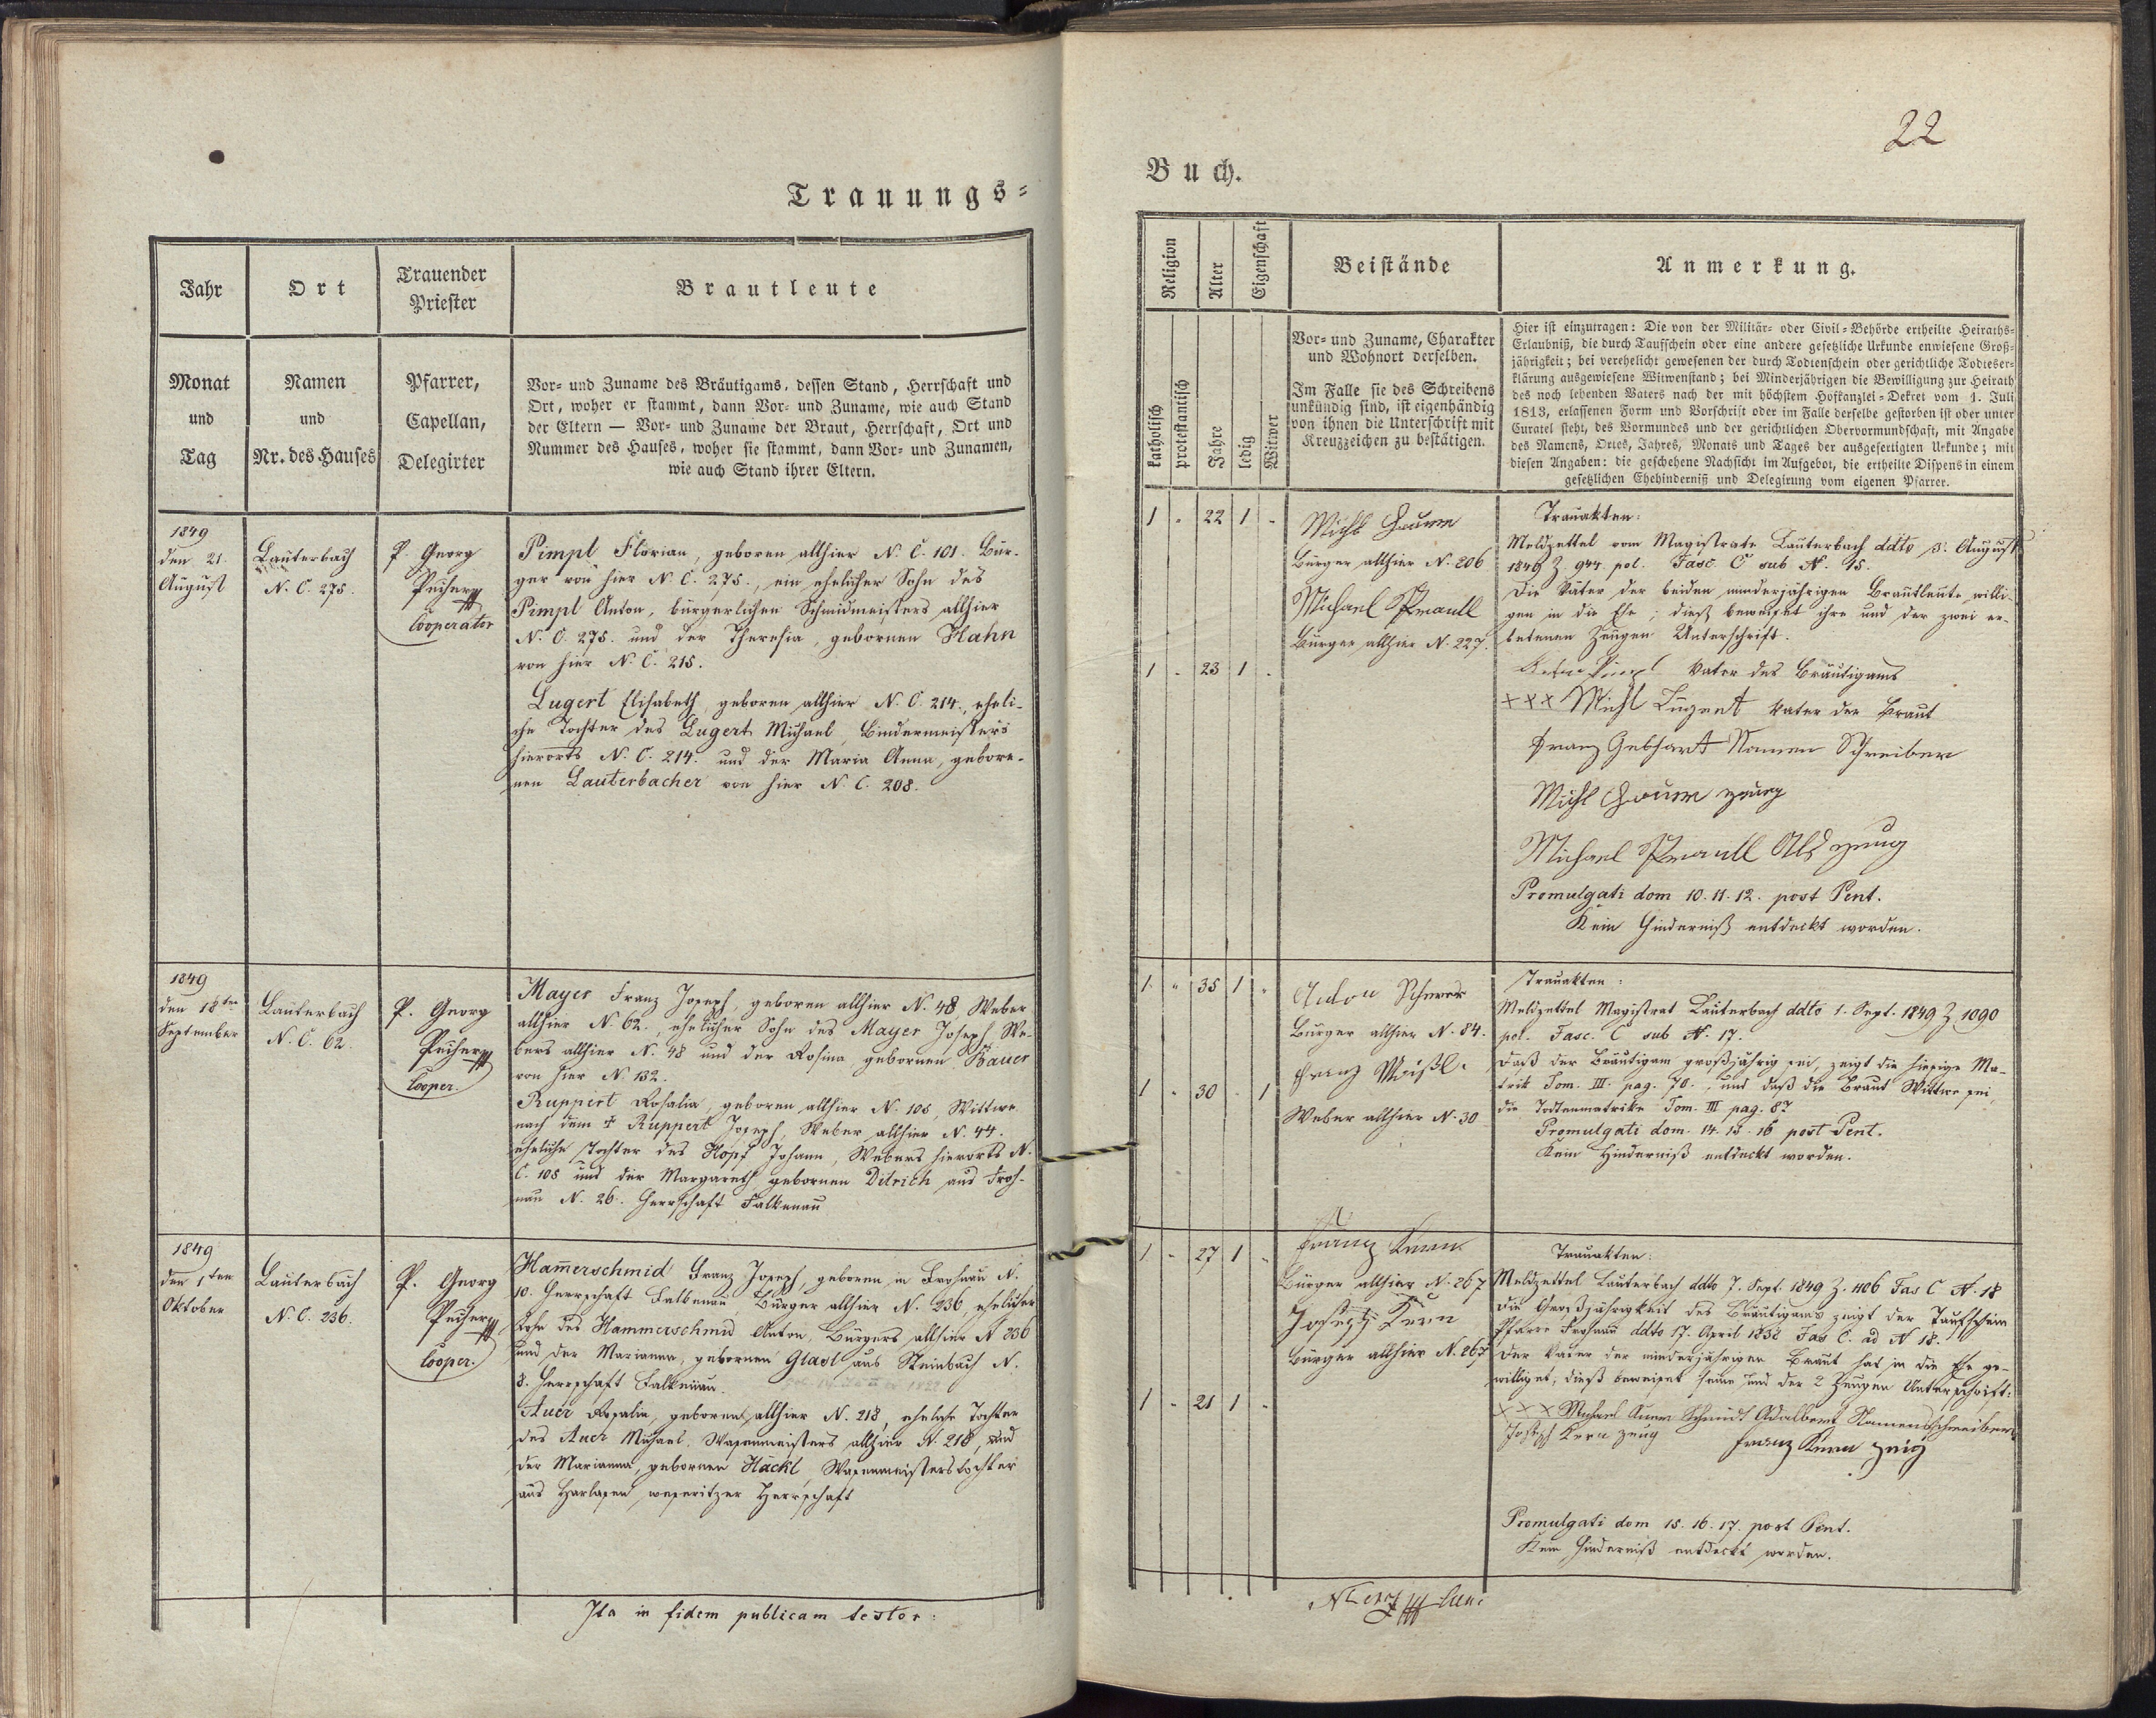 22
Trauungs=
Buch.
Jahr
Ort
Trauender
Priester
Brautleute
Monat
und
Tag
Namen
und
Nr. des Hauses
Pfarrer,
Capellan,
Delegirter
Vor= und Zuname des Bräutigams, dessen Stand, Herrschaft und
Ort, woher er stammt, dann Vor= und Zuname, wie auch Stand
der Eltern — Vor= und Zuname der Braut, Herrschaft, Ort und
Nummer des Hauses, woher sie stammt, dann Vor= und Zunamen,
wie auch Stand ihrer Eltern.
Religion
Alter
Eigenschaft
Beistände
Anmerkung.
katholisch
protestantisch
Jahre
ledig
Witwer
Vor= und Zuname, Charakter
und Wohnort derselben.
Im Falle sie des Schreibens
unkündig sind, ist eigenhändig
von ihnen die Unterschrift mit
Kreuzzeichen zu bestätigen.
Hier ist einzutragen: Die von der Militär= oder Civil=Behörde ertheilte Heiraths=
Erlaubniß, die durch Taufschein oder eine andere gesetzliche Urkunde erwiesene Groß=
jährigkeit; bei verehelicht gewesenen der durch Todtenschein oder gerichtliche Todteser=
klärung ausgewiesene Witwenstand; bei Minderjährigen die Bewilligung zur Heirath
des noch lebenden Vaters nach der mit höchstem Hofkanzlei=Dekret vom 1. Juli
1813, erlassenen Form und Vorschrift oder im Falle derselbe gestorben ist oder unter
Curatel steht, des Vormundes und der gerichtlichen Obervormundschaft, mit Angabe
des Namens, Ortes, Jahres, Monats und Tages der ausgefertigten Urkunde; mit
diesen Angaben: die geschehene Nachsicht im Aufgebot, die ertheilte Dispens in einem
gesetzlichen Ehehinderniß und Delegirung vom eigenen Pfarrer.
1849
den 21.
August
Lauterbach
N. C. 275.
P. Georg
Cooperator
Pimpl Florian, geboren allhier N. C. 101. Bür-
ger von hier N. C. 275., ein ehelicher Sohn des
Pimpl Anton, bürgerlichen Schmidmeisters allhier
N. C. 275. und der Theresia, gebornen Hahn
von hier N. C. 215.
Lugert Elisabeth, geboren allhier N. C. 214., eheli-
che Tochter des Lugert Michael, Bindermeisters
hierorts N. C. 214. und der Maria Anna, gebore-
nen Lauterbacher von hier N. C. 208.
1 - 22 1 -
1 - 23 1 -
Michl
Bürger allhier N. 206
Michael
Bürger allhier N. 227.
Trauakten:
Meldzettel vom Magistrate Lauterbach ddto 3. August
1849 Z 944 pol. Fasc. C sub N. 15.
Die Väter der beiden minderjährigen Brautleute willi-
gen in die Ehe; dieß beweiset ihre und der zwei er-
betenen Zeugen Unterschrift.
Vater des Bräutigams
+++ Michl Lugert Vater der Braut
Franz Gebhart Namen Schreiber
Michl Zeug
Michael Als Zeug
Promulgati dom 10. 11. 12. post Pent.
Kein Hinderniß entdeckt worden.
1849
den 18ten
September
Lauterbach
N. C. 62.
P. Georg
Cooper.
Mayer Franz Joseph, geboren allhier N. 48, Weber
allhier N. 62., ehelicher Sohn des Mayer Joseph, We-
bers allhier N. 48 und der Rosina gebornen Bauer
von hier N. 132.
Ruppert Rosalia, geboren allhier N. 105, Wittwe
nach dem † Ruppert Joseph, Weber allhier N. 44.
eheliche Tochter des Hopf Johann, Webers hierorts N.
C. 105 und der Margareth gebornen Ditrich aus Froh-
nau N. 26. Herrschaft Falkenau
1 - 35 1 -
1 - 30 - 1
Anton
Bürger allhier N. 84.
Franz
Weber allhier N. 30
Trauakten:
Meldzettel Magistrat Lauterbach ddto 1. Sept. 1849 Z 1090
pol. Fasc. C sub N. 17.
Daß der Bräutigam großjährig sei, zeigt die hiesige Ma-
trik Tom. III. pag. 70., und daß die Braut Wittwe sei,
die Todtenmatrike Tom. III pag. 87
Promulgati dom. 14. 15. 16 post Pent.
Kein Hinderniß entdeckt worden.
1849
den 1ten
Oktober
Lauterbach
N. C. 236.
P. Georg
Cooper.
Ham̄erschmid Franz Joseph, geboren in Frohnau N.
10. Herrschaft Falkenau, Bürger allhier N. 236, ehelicher
Sohn des Hammerschmid Anton, Bürgers allhier N 236
und der Marianna, gebornen Glasl aus Steinbach N.
3. Herrschaft Falkenau.
Auer Rosalia, geboren allhier N. 218, eheliche Tochter
des Auer Michael, Wasenmeisters allhier N. 218, und
der Marianna, gebornen Häckl, Wasenmeisterstochter
aus Harlasen, weseritzer Herrschaft
1 - 27 1 -
1 - 21 1 -
Franz Kern
Bürger allhier N. 267
Joseph Kern
Bürger allhier N. 267
Trauakten:
Meldzettel Lauterbach ddto 7. Sept. 1849 Z. 1106 Fas C N. 18
Die Großjährigkeit des Bräutigams zeigt der Taufschein
Pfarre Frohnau ddto 17. April 1838 Fas C. ad N 18.
Der Vater der minderjährigen Braut hat in die Ehe ge-
williget, dieß beweiset seine und der 2 Zeugen Unterschrift:
+++ Michael Auer Schmidt Adalbert Namensschreiber
Joseph Kern Zeug Franz Kern Zeug
Promulgati dom 15. 16. 17. post Pent.
Kein Hinderniß entdeckt worden.
Ita in fidem publicam testor: